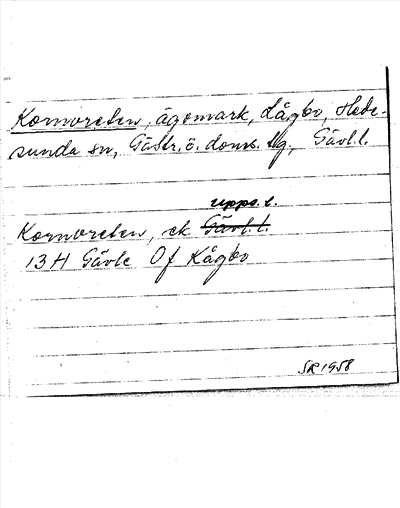 Kornvreten, ägomark, Lågbo, Hede-
sunda sn, Gästr. ö. doms. tg, Gävl. l.
Upps. l.
Kornvreten, ek Gävl. l.
13H Gävle 0f Lågbo
SR 1958